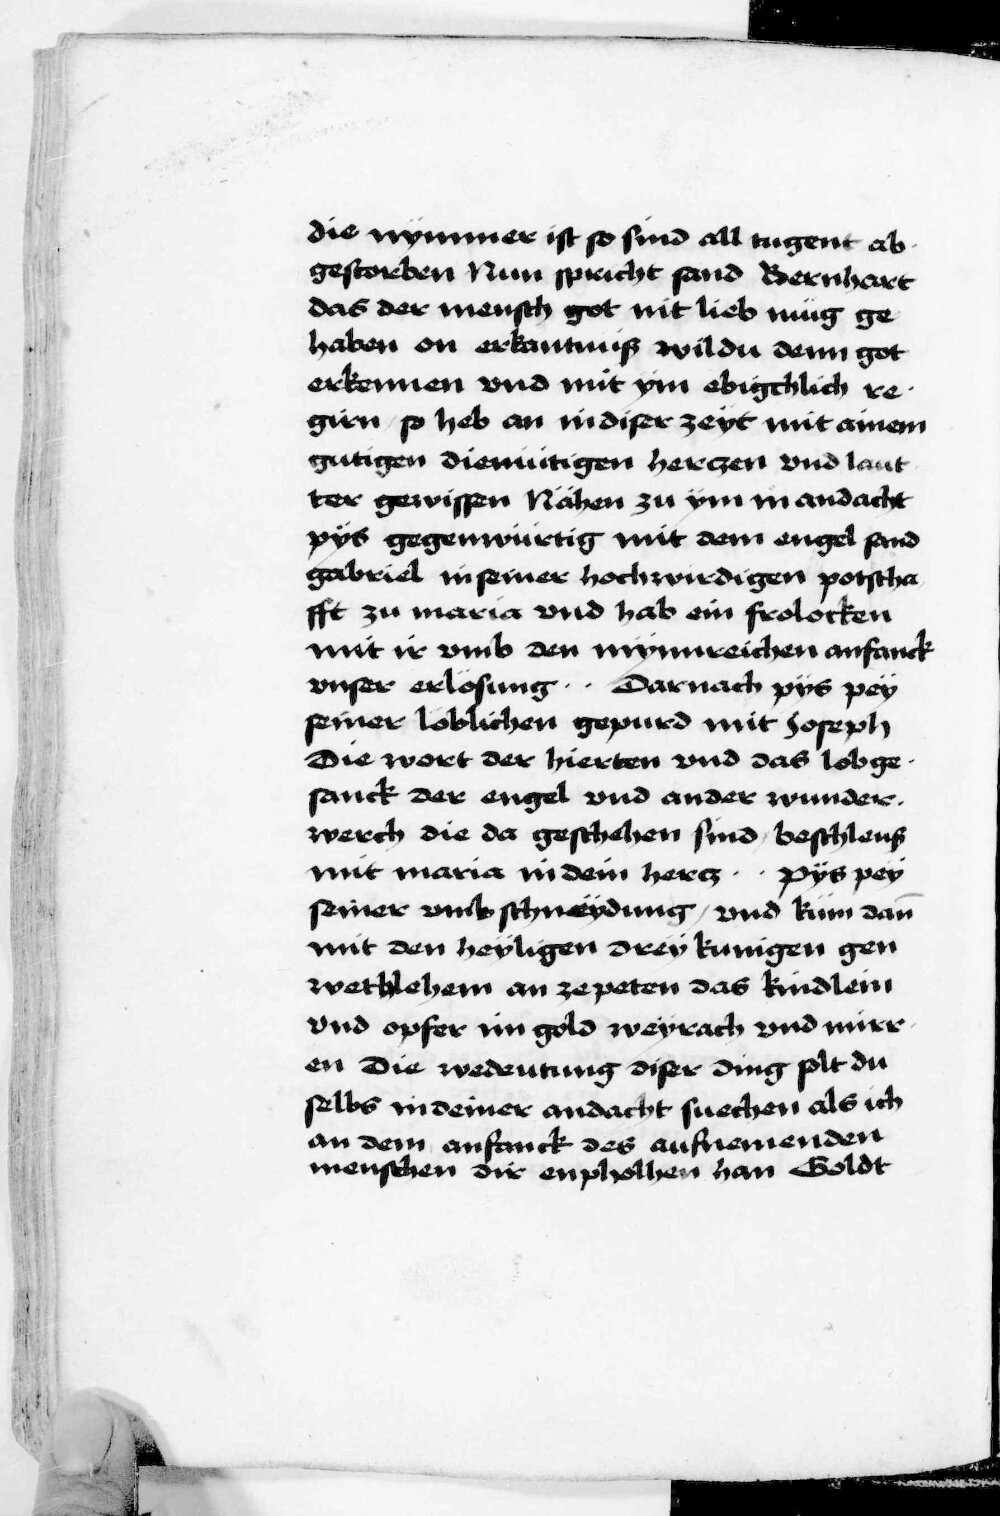 die nÿmmer ist so sind all tugent ab-
gestorben Nun spricht sand Bernhart
das der mensch got nit lieb müg ge
haben on erkantnuß wildu denn got
erkennen vnd mit ÿm ebigchlich re-
girn / so heb an in diser zeÿt mit ainem
gutigen diemütigen herczen vnd laut
ter gewissen Nähen zu ÿm in andacht
pÿs gegenwürtig mit dem engel sand
gabriel in seiner hochwirdigen potscha
fft zu maria vnd hab ein frolocken
mit ir vmb den mÿnnreichen anfanck
vnser erlösung · · Darnach pÿs peÿ
seiner löblichen gepurd mit Joseph
Die wort der hierten vnd das lobge-
sanck der engel vnd ander wunder-
werch die da geschehen sind / beschleuß
mit maria in dein hercz · · Pÿs peÿ
seiner vmbschneÿdung / vnd küm dan̄
mit den heÿligen dreÿ kunigen gen
wethlehem an zepeten das kindlein
vnd opfer im gold weÿrach vnd mirr-
en Die wedeutung diser ding solt du
selbs in deiner andacht suechen als ich
an dem anfanck des aufnemenden
menschen dir enpholhen han Goldt